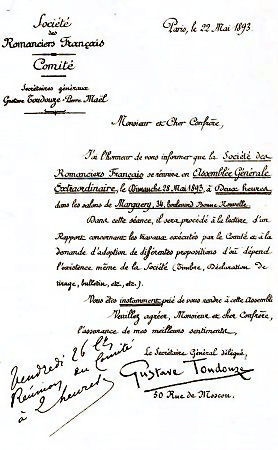 Société
des
Romanciers Français
Comité
Secrétaires généraux
Gustave Toudouze - Pierre Maël
Paris, le 22 Mai 1893
Monsieur et Cher Confrère,
J'ai l'honneur de vous informer que la Société des
Romanciers Français se réunira en Assemblée Générale
Extraordinaire, le Dimanche 28 Mai 1893, à Deux heures
dans les salons de Marguery, 34, boulevard Bonne Nouvelle.
Dans cette séance, il sera procédé à la lecture d'un
Rapport concernant les travaux exécutés par le Comité et à la
demande d'adoption de différentes propositions d'où dépend
l'existence même de la Société (Timbre, Déclaration de
tirage, bulletin, etc., etc.).
Vous êtes instamment prié de vous rendre à cette Assemblée
Veuillez agréer, Monsieur et cher Confrère,
l'assurance de mes meilleurs sentiments.
Le Secrétaire Général délégué,
Gustave Toudouze
50 Rue de Moscou.
Vendredi 26 Ct
Réunion du Comité
à 2 heures